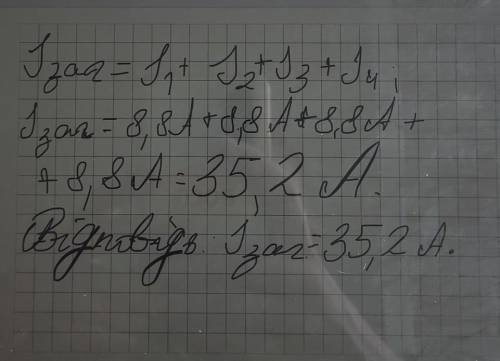 Iзаг = I1 + I2 + I3 + I4;
Iзаг = 8,8А + 8,8А + 8,8А +
+ 8,8А = 35,2 А.
Відповідь: Iзаг = 35,2 А.